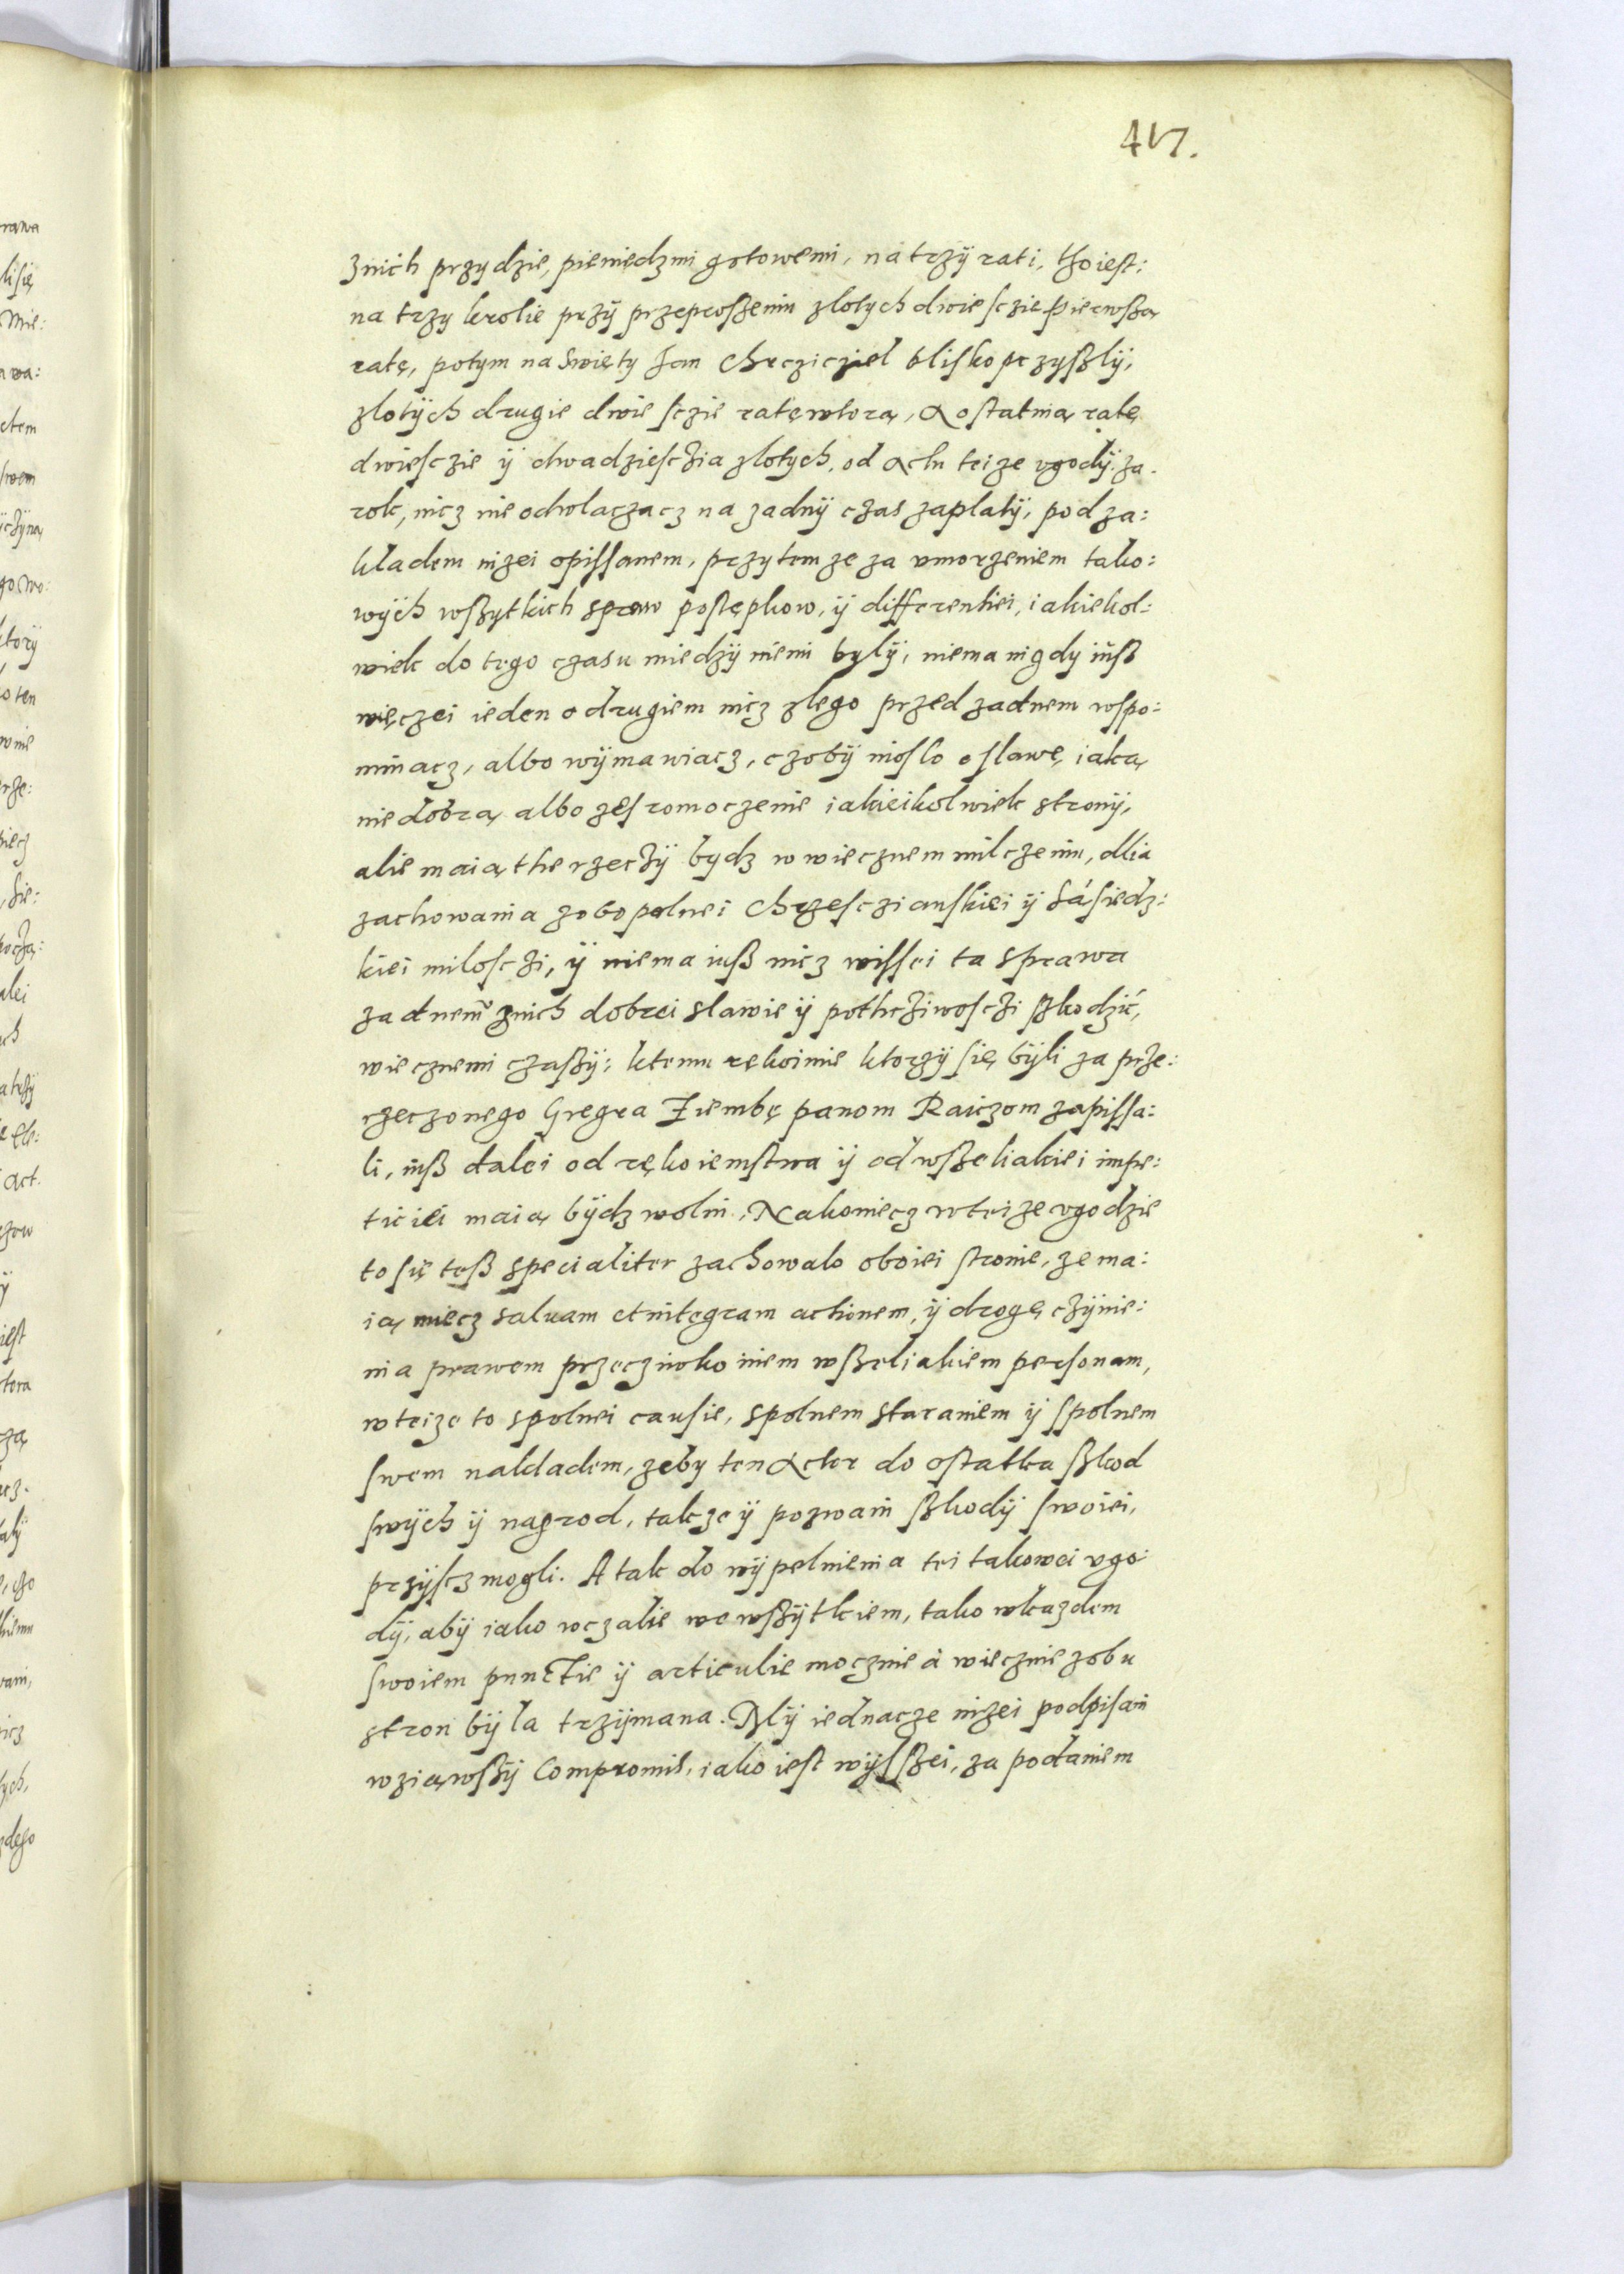 417.
znich przydzie, pieniędzmi gotowemi, na trzÿ rati, tho iest:
na trzy krolie przÿ przeproszeniu zlotych dwiesczie pierwszą
ratę, potym na Swięty Jan Chrzicziel blisko przyszlÿ,
zlotÿch drugie dwiesczie ratę wtorą, A ostatnią ratę
dwiesczie ÿ dwadziesczia zlotych, od Actu teize vgodÿ za
rok, nicz nie odwlaczacz na zadnÿ czas zaplatÿ, pod za:
kladem nizei opissanem, przytem ze za vmorzeniem tako:
wÿch wszytkich spraw postępkow, ÿ differentiei, iakiekol:
wiek do tego czasu miedzÿ niemi bylÿ, niema nigdy iusz
więczei ieden o drugiem nicz zlego przed zadnem wspo:
minacz, albo wÿmawiacz, czobÿ nioslo o slawę iaką
niedobrą albo zesromoczenie iakieikolwiek stronÿ,
alie maią the rzeczÿ bydz w wiecznem milczeniu, dlia
zachowania zobopolnei chrzesczianskiei ÿ sąsiedz:
kiei milosczi, ÿ niema iusz nicz wissei ta sprawa
zadnemu znich dobrei slawie ÿ pothcziwosczi szkodzić,
wiecznemi czaszÿ: ktemu rękoimie ktorzÿ się bÿli za prze:
rzeczonego Gregra Ziembę panom Raiczom zapissa:
li, iusz dalei od rękoiemstwa ÿ od wszeliakiei impe:
ticiei maią bÿdz wolni. Nakoniecz wteize vgodzie
to się tesz specialiter zachowalo oboiei stronie, ze ma:
ią miecz saluam et integram actionem, ÿ drogę czÿnie:
nia prawem przecziwko iniem wszeliakiem personam,
wteize to spolnei causie, spolnem staraniem ÿ spolnem
swem nakladem, zeby ten Actor do ostatka szkod
swÿch ÿ nagrod, takze ÿ pozwani szkodÿ swoiei,
przÿscz mogli. A tak do wÿpelnienia tei takowei vgo:
dÿ, abÿ iako wczalie we wszÿtkiem, tako wkazdem
swoiem punctie ÿ articulie mocznie a wiecznie zobu
stron bÿla trzÿmana. Mÿ iednacze nizei podpisani
wziąwszÿ Compromis, iako iest wÿsszei, za podaniem